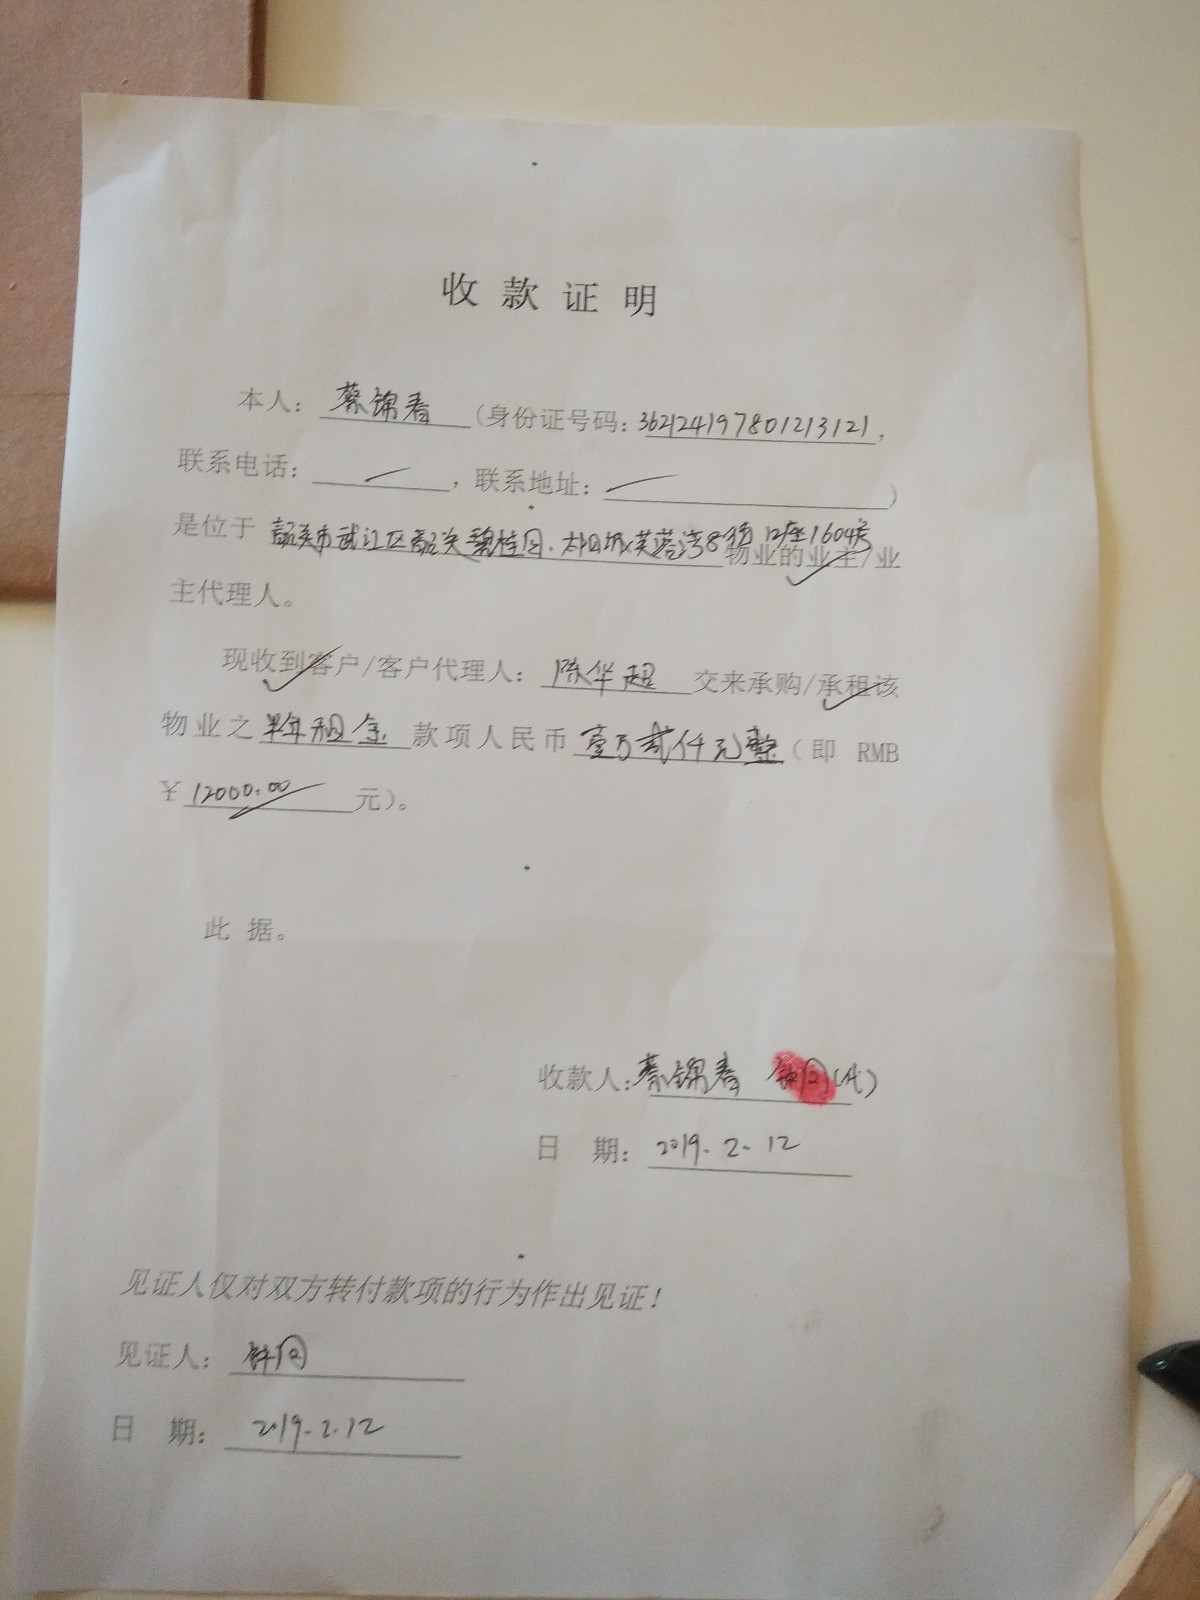 收款证明
本人：蔡锦春（身份证号码：362124197801213121，
联系电话：／，联系地址：／）
是位于韶关市武江区韶关碧桂园·太阳城芙蓉湾8街12座1604房物业的业主/业
主代理人。
现收到客户/客户代理人：陈华超 交来承购/承租该
物业之半年租金 款项人民币壹万贰仟元整（即 RMB
￥12000.00 元）。
此 据。
收款人：蔡锦春 (代)
日 期：2019.2.12
见证人仅对双方转付款项的行为作出见证！
见证人：
日 期：2019.2.12